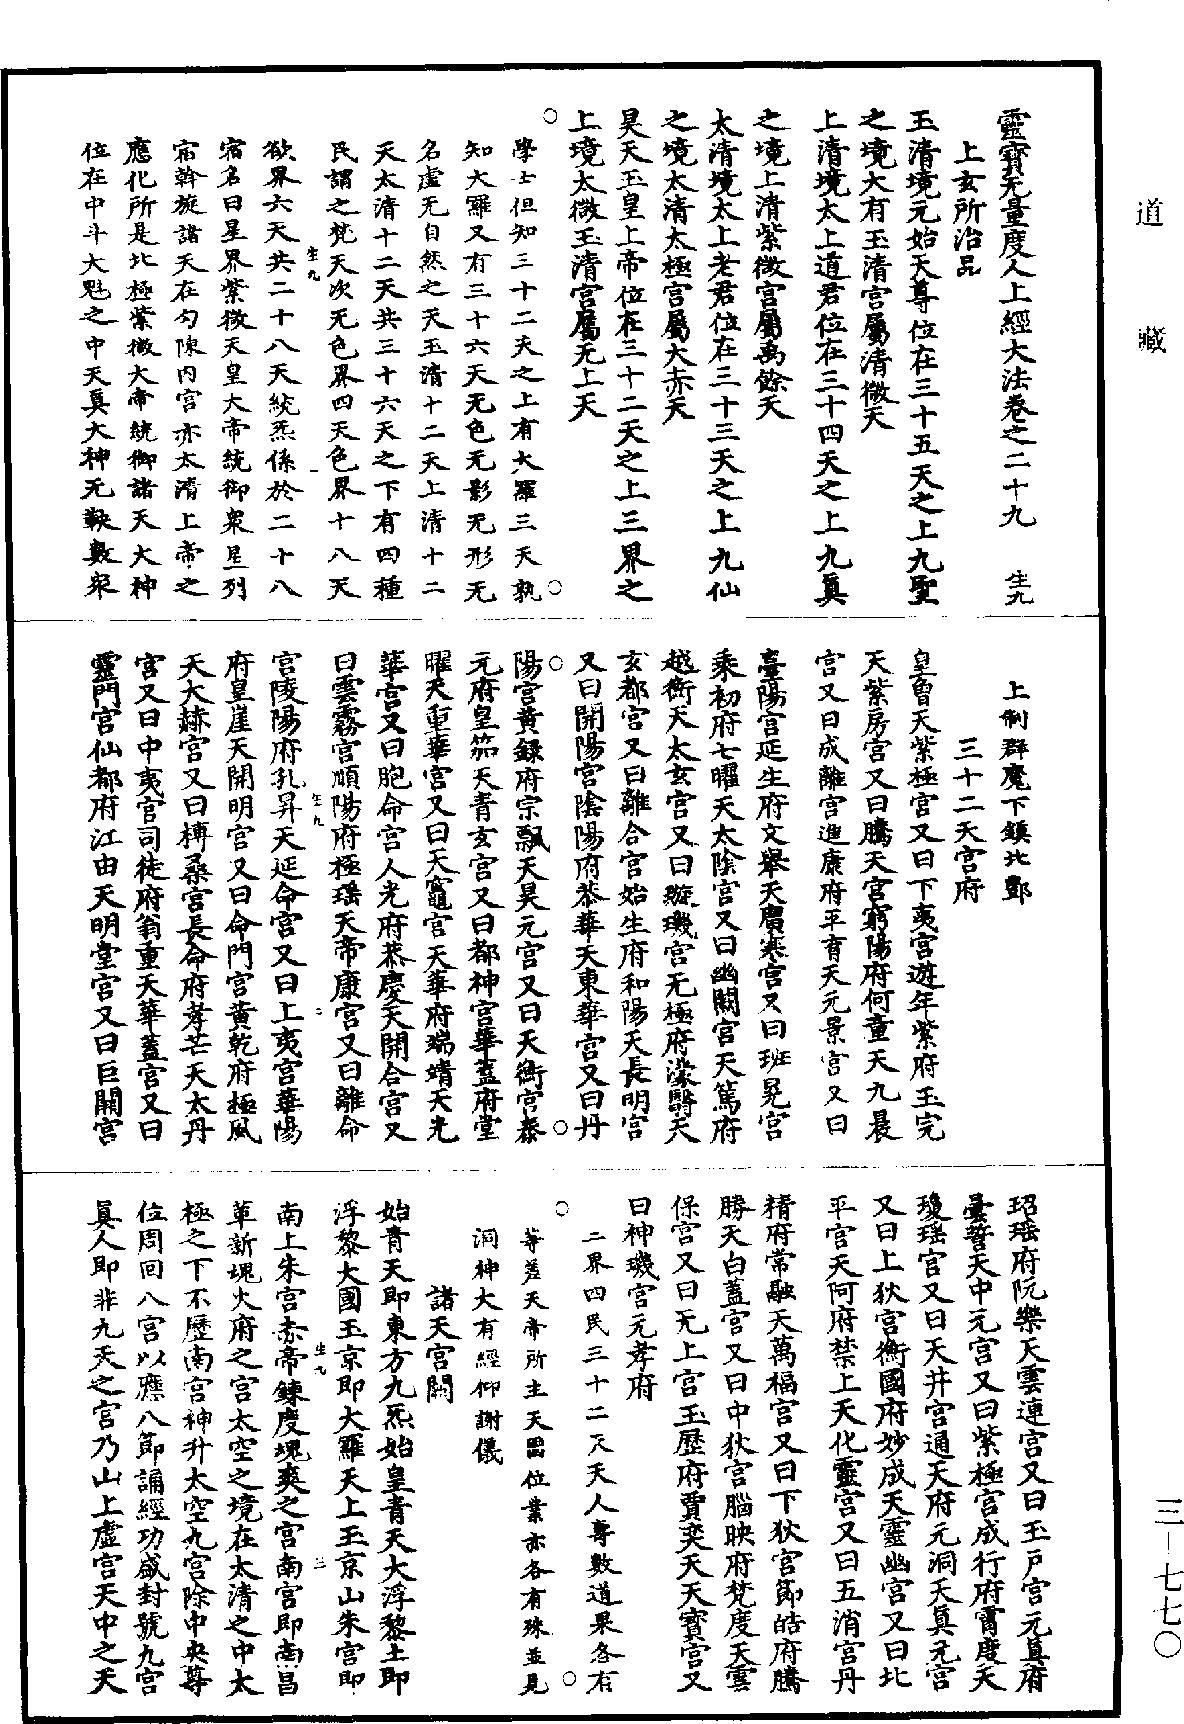 道藏
靈寶无量度人上經大法卷之二十九　生九
上玄所治品
玉清境元始天尊位在三十五天之上九聖
之境大有玉清宮屬清微天
上清境太上道君位在三十四天之上九真
之境上清紫微宮屬禹餘天
太清境太上老君位在三十三天之上九仙
之境太清太極宮屬大赤天
昊天玉皇上帝位在三十二天之上三界之
上境太微玉清宮屬无上天
學士但知三十二天之上有大羅三天孰
知大羅又有三十六天无色无影无形无
名虛无自然之天玉清十二天上清十二
天太清十二天共三十六天之下有四種
民謂之梵天次无色界四天色界十八天
欲界六天共二十八天統炁係於二十八
宿名曰星界紫微天皇大帝統御衆星列
宿斡旋諸天在勾陳內宮亦太清上帝之
應化所是北極紫微大帝統御諸天大神
位在中斗大魁之中天真大神无鞅數衆
上制群魔下鎮北酆
三十二天宮府
皇曾天紫極宮又曰下夷宮遊年紫府玉完
天紫房宮又曰騰天宮窮陽府何童天九晨
宮又曰成離宮進康府平育天元景宮又曰
臺陽宮延生府文舉天廣寒宮又曰班晃宮
乘初府七曜天太陰宮又曰幽關宮天篤府
越衡天太玄宮又曰璇璣宮无極府濛翳天
玄都宮又曰離合宮始生府和陽天長明宮
又曰開陽宮陰陽府恭華天東華宮又曰丹
陽宮黃錄府宗飄天昊元宮又曰天衡宮泰
元府皇笳天青玄宮又曰都神宮華蓋府堂
曜天重華宮又曰天竈宮天華府瑞靖天光
華宮又曰胞命宮人光府恭慶天開合宮又
曰雲霧宮順陽府極瑤天帝康宮又曰離命
宮陵陽府孔昇天延命宮又曰上夷宮華陽
府皇崖天開明宮又曰命門宮黃乾府極風
天大赫宮又曰榑桑宮長命府孝芒天太丹
宮又曰中夷宮司徒府翁重天華蓋宮又曰
靈門宮仙都府江由天明堂宮又曰巨關宮
玿瑤府阮樂天雲連宮又曰玉戶宮元真府
曇誓天中元宮又曰紫極宮成行府霄度天
瓊瑤宮又曰天井宮通天府元洞天真元宮
又曰上狄宮衡國府妙成天靈幽宮又曰北
平宮天阿府禁上天化靈宮又曰五消宮丹
精府常融天萬福宮又曰下狄宮節皓府騰
勝天白蓋宮又曰中狄宮腦映府梵度天雲
保宮又曰无上宮玉歷府賈奕天天寶宮又
曰神璣宮元孝府
二界四民三十二天天人尊數道果各有
等差天帝所主天罡位業亦各有殊並見
洞神大有經仰謝儀
諸天宮闕
始青天即東方九炁始皇青天大浮黎土即
浮黎大國玉京即大羅天上玉京山朱宮即
南上朱宮赤帝鍊度魂爽之宮南宮即南昌
革新魂火府之宮太空之境在太清之中太
極之下不歷南宮神升太空九宮除中央尊
位周回八宮以應八節誦經功盛封號九宮
真人即非九天之宮乃山上虛宮天中之天
三—七七〇